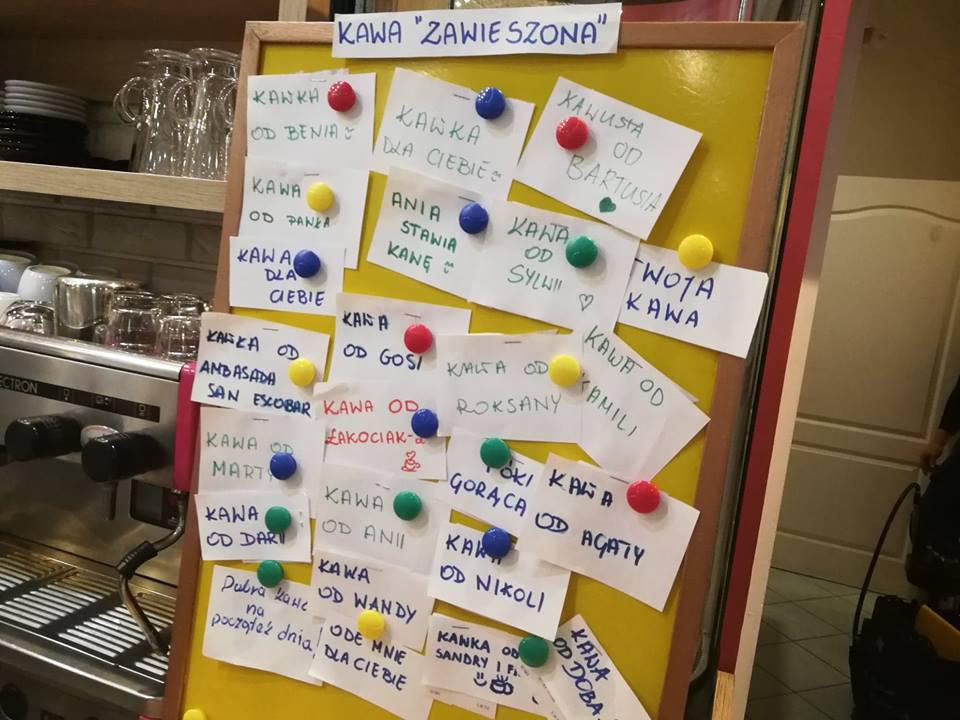 KAWA "ZAWIESZONA"
KAWKA
OD BENIA
KAWKA
DLA CIEBIE
KAWUSIA
OD
BARTUSIA
KAWA
OD PAWKA
ANIA
STAWIA
KAWĘ
KAWA
OD
SYLWII
TWOJA
KAWA
KAWA
DLA
CIEBIE
KAWKA OD
AMBASADA
SAN ESCOBAR
KAWA
OD GOSI
KAWA OD
ROKSANY
KAWA OD
KAMILI
KAWA OD
ŁAKOCIAK-a
KAWA OD
MARTY
PÓKI
GORĄCA
KAWA
OD AGATY
KAWA
OD DARII
KAWA
OD ANII
KAWA
OD NIKOLI
Dobra kawa
na
początek dnia
KAWA
OD WANDY
ODE MNIE
DLA CIEBIE
KAWKA OD
SANDRY I
KAWA
OD
CTRON